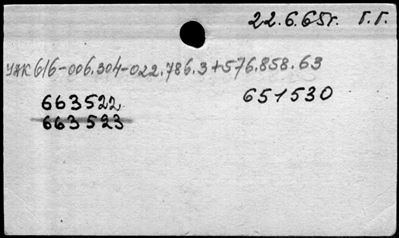 22.6.65г. Г.Г.
УДК 616-006.304-022.786.3+576.858.63
663522 651530
663523